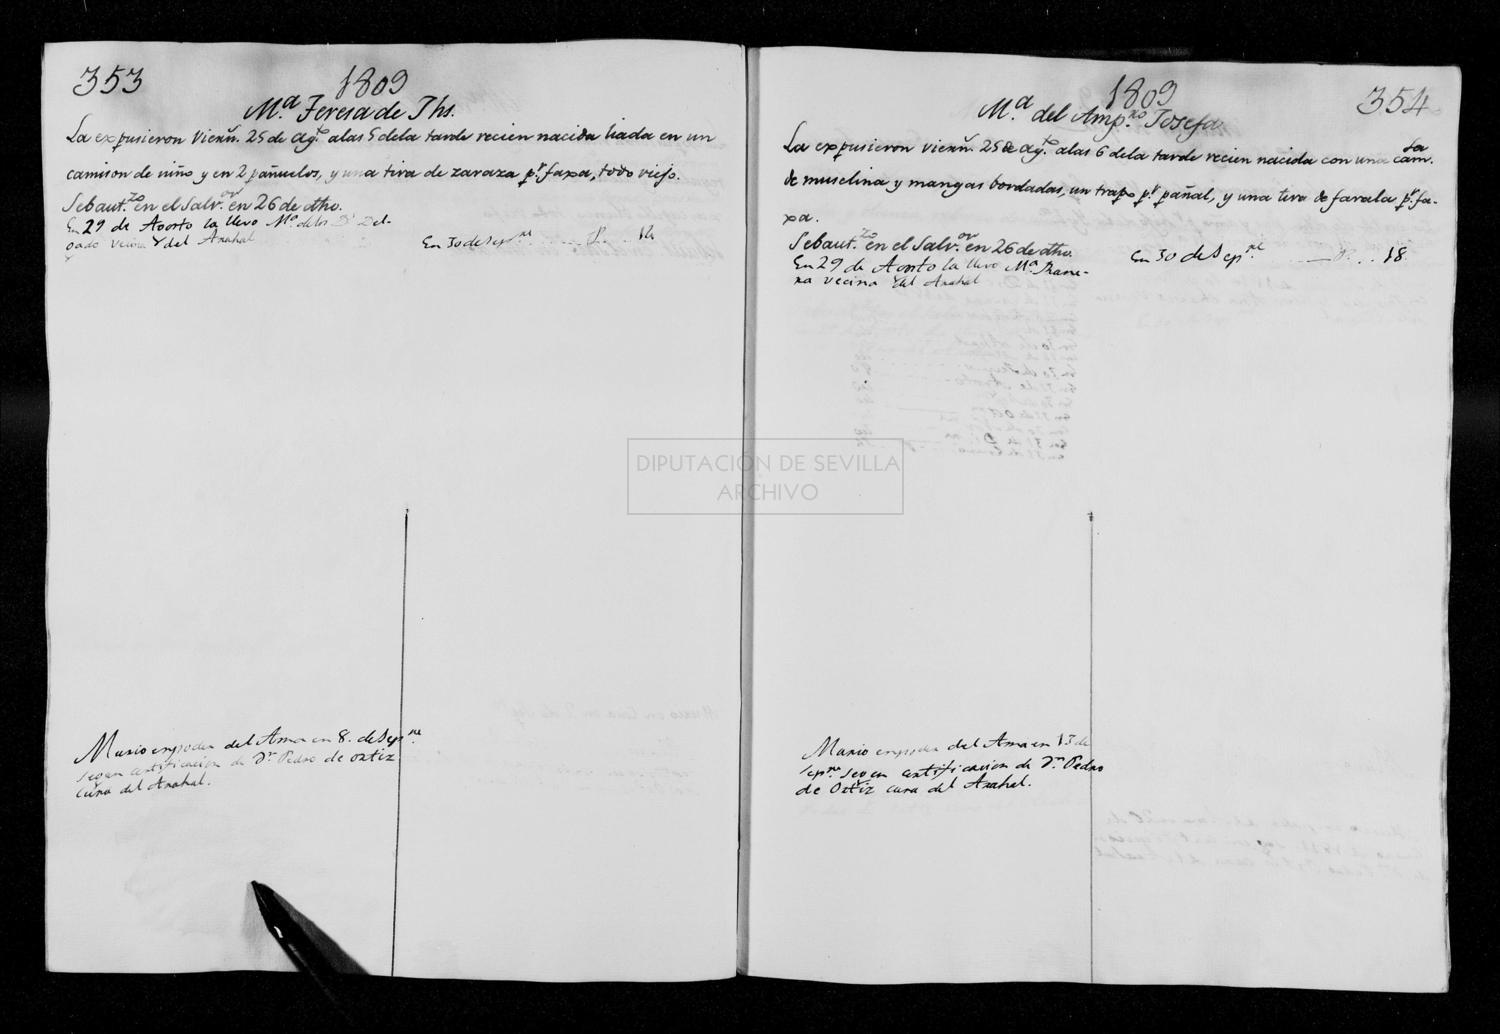 353
1809
Mª Teresa de Jhs.
La expusieron viern. 25 de Agto. alas 5 dela tarde recien nacida liada en un
camison de niño y en 2 pañuelos, y una tira de zaraza pr. faxa, todo viejo.
Se bautzo. en el Salvor. en 26 de dho.
En 29 de Agosto la llevo Mª delos Del-
gado vecina del Arahal
En 30 de Sepre. 14
Murio en poder del Ama en 8. de Sepre.
segun certificacion de Dn. Pedro de Ortiz
cura del Arahal.
1809
354
Mª del Ampro. Josefa
La expusieron viern. 25 de Agto. alas 6 dela tarde recien nacida con una camsa.
de muselina y mangas bordadas, un trapo pr. pañal, y una tira de farala pr. fa-
xa.
Se bautzo. en el Salvor. en 26 de dho.
En 29 de Agosto la llevo Mª
vecina del Arahal
En 30 de Sepre. 18
Murio en poder del Ama en 13 de
Sepre. segun certificacion de Dn. Pedro
de Ortiz cura del Arahal.
DIPUTACIÓN DE SEVILLA
ARCHIVO